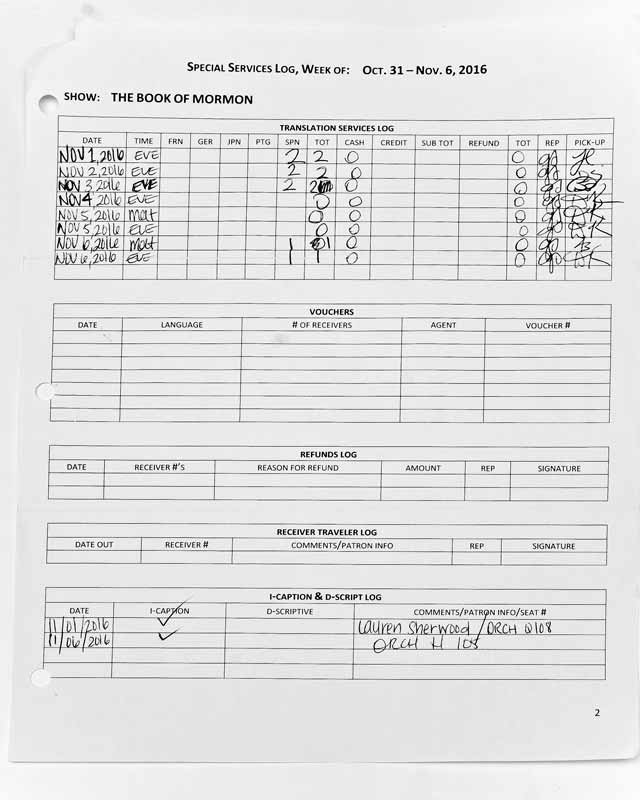 SPECIAL SERVICES LOG, WEEK OF: OCT. 31 – NOV. 6, 2016
SHOW: THE BOOK OF MORMON
TRANSLATION SERVICES LOG
DATE TIME FRN GER JPN PTG SPN TOT CASH CREDIT SUB TOT REFUND TOT REP PICK-UP
NOV 1, 2016 EVE 2 2 0 0
NOV 2, 2016 EVE 2 2 0 0
NOV 3 2016 EVE 2 2 0 0
NOV 4, 2016 EVE 0 0 0
NOV 5, 2016 Matt 0 0 0
NOV 5, 2016 EVE 0 0 0
NOV 6, 2016 Matt 1 1 0 0
NOV 6, 2016 EVE 1 1 0 0
VOUCHERS
DATE LANGUAGE # OF RECEIVERS AGENT VOUCHER #
REFUNDS LOG
DATE RECEIVER #'S REASON FOR REFUND AMOUNT REP SIGNATURE
RECEIVER TRAVELER LOG
DATE OUT RECEIVER # COMMENTS/PATRON INFO REP SIGNATURE
I-CAPTION & D-SCRIPT LOG
DATE I-CAPTION D-SCRIPTIVE COMMENTS/PATRON INFO/SEAT #
11/01/2016 ✓ Lauren Sherwood / ORCH Q108
11/06/2016 ✓ ORCH H 108
2